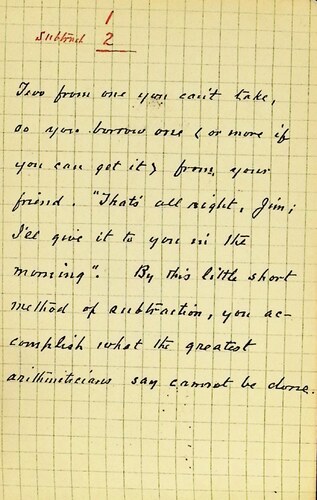 1
Subtract 2
Two from one you can't take,
so you borrow one (or more if
you can get it) from your
friend. "That's all right, Jim;
I'll give it to you in the
morning". By this little short
method of subtraction, you ac-
complish what the greatest
arithmeticians say cannot be done.